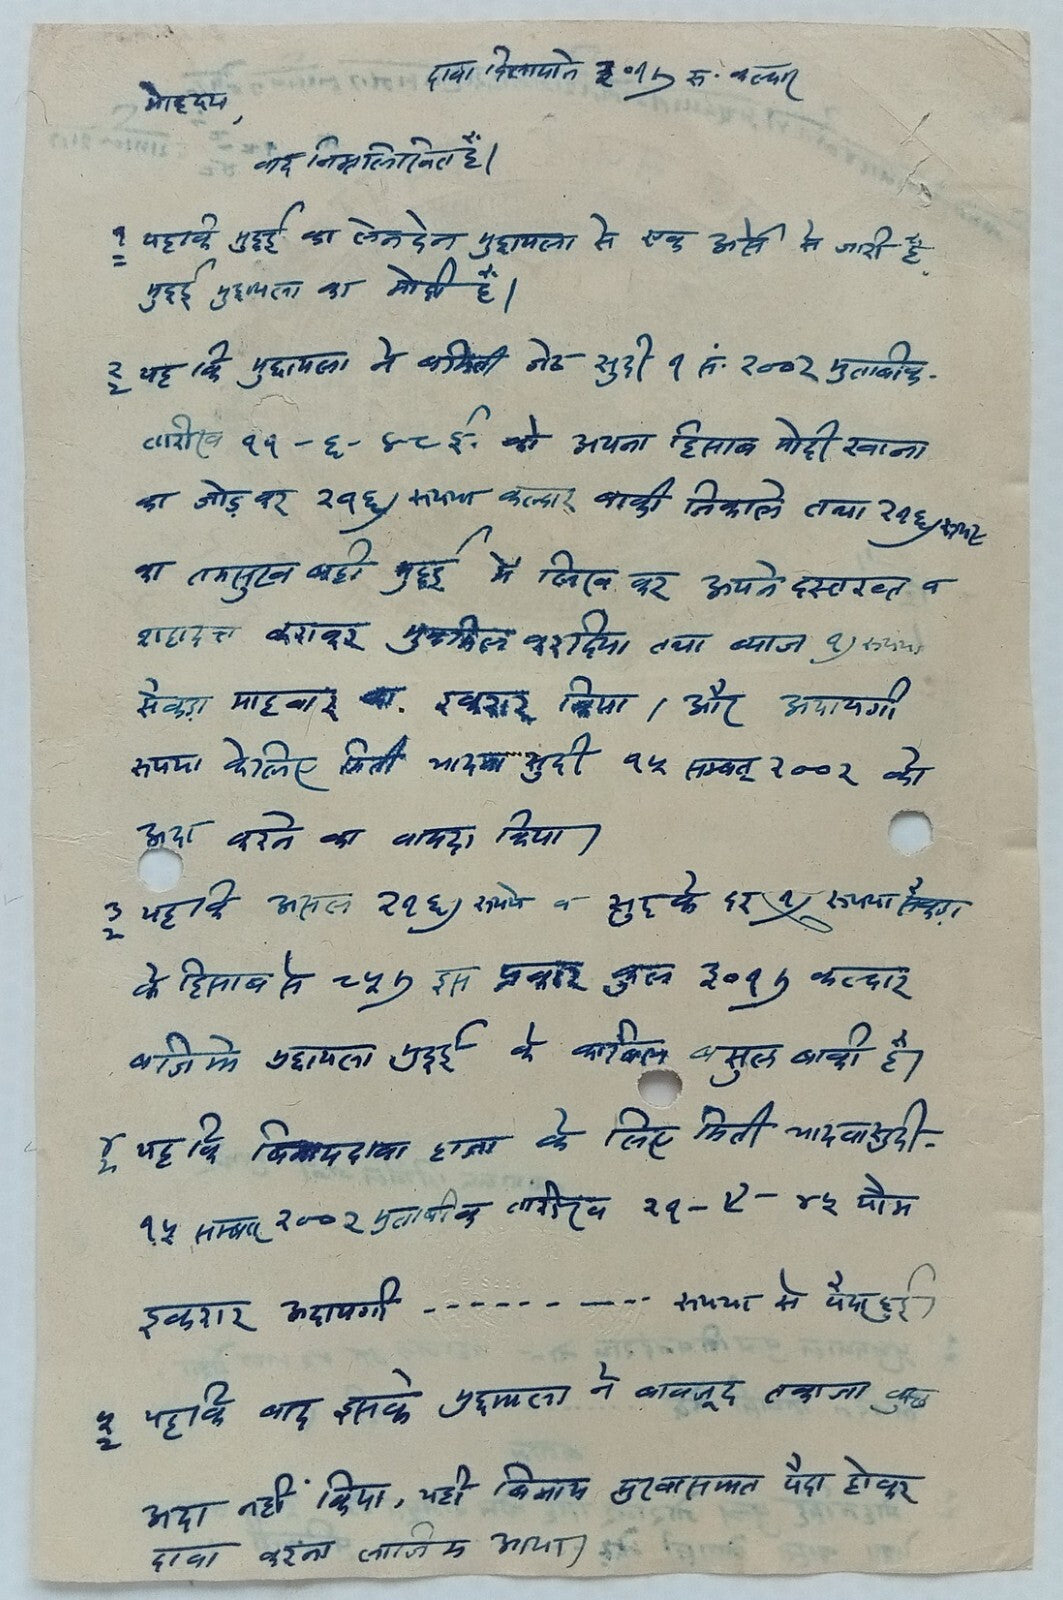 दावा दिलापाने ३०१) रु. कल्दार
महोदय,
वाद निम्नलिखित है।
१ यहकि मुद्दई का लेनदेन मुद्दायला से एक अर्से से जारी है
मुद्दई मुद्दायला का मोदी है।
२ यह कि मुद्दायला ने बमिती जेठ सुदी १ सं. २००२ मुताबीक-
तारीख ११-६-४५ ई. को अपना हिसाब मोदी खाना
का जोड़ कर २१६) रुपया कल्दार बाकी निकाले तथा २१६) रुपये
का तमसुख बही मुद्दई में लिख कर अपने दस्तखत व
शहादत कराकर मुकमिल करदिया तथा ब्याज १) रुपया
सैकड़ा माहवार का. इकरार किया। और अदायगी
रुपया केलिए मिती भादवा सुदी १५ सम्वत् २००२ को
अदा करने का वायदा किया।
३ यहकि असल २१६) रुपये व सुद के दर १) रुपया सैकड़ा
के हिसाब से ८५) इस प्रकार कुल ३०१) कल्दार
बजिमे मुद्दायला मुद्दई के काबिल वसुल बाकी है।
४ यहकि बिनायदावा हाजा के लिए मिती भादवा सुदी-
१५ सम्वत् २००२ मुताबीक तारीख २१-९-४५ यौम
इकरार अदायगी --------- रुपया से पैदा हुई।
५ यहकि बाद इसके मुद्दायला ने बावजूद तकाजा कुछ
अदा नहीं किया, यही बिनाय मुखासमत पैदा होकर
दावा करना लाजिम आया।